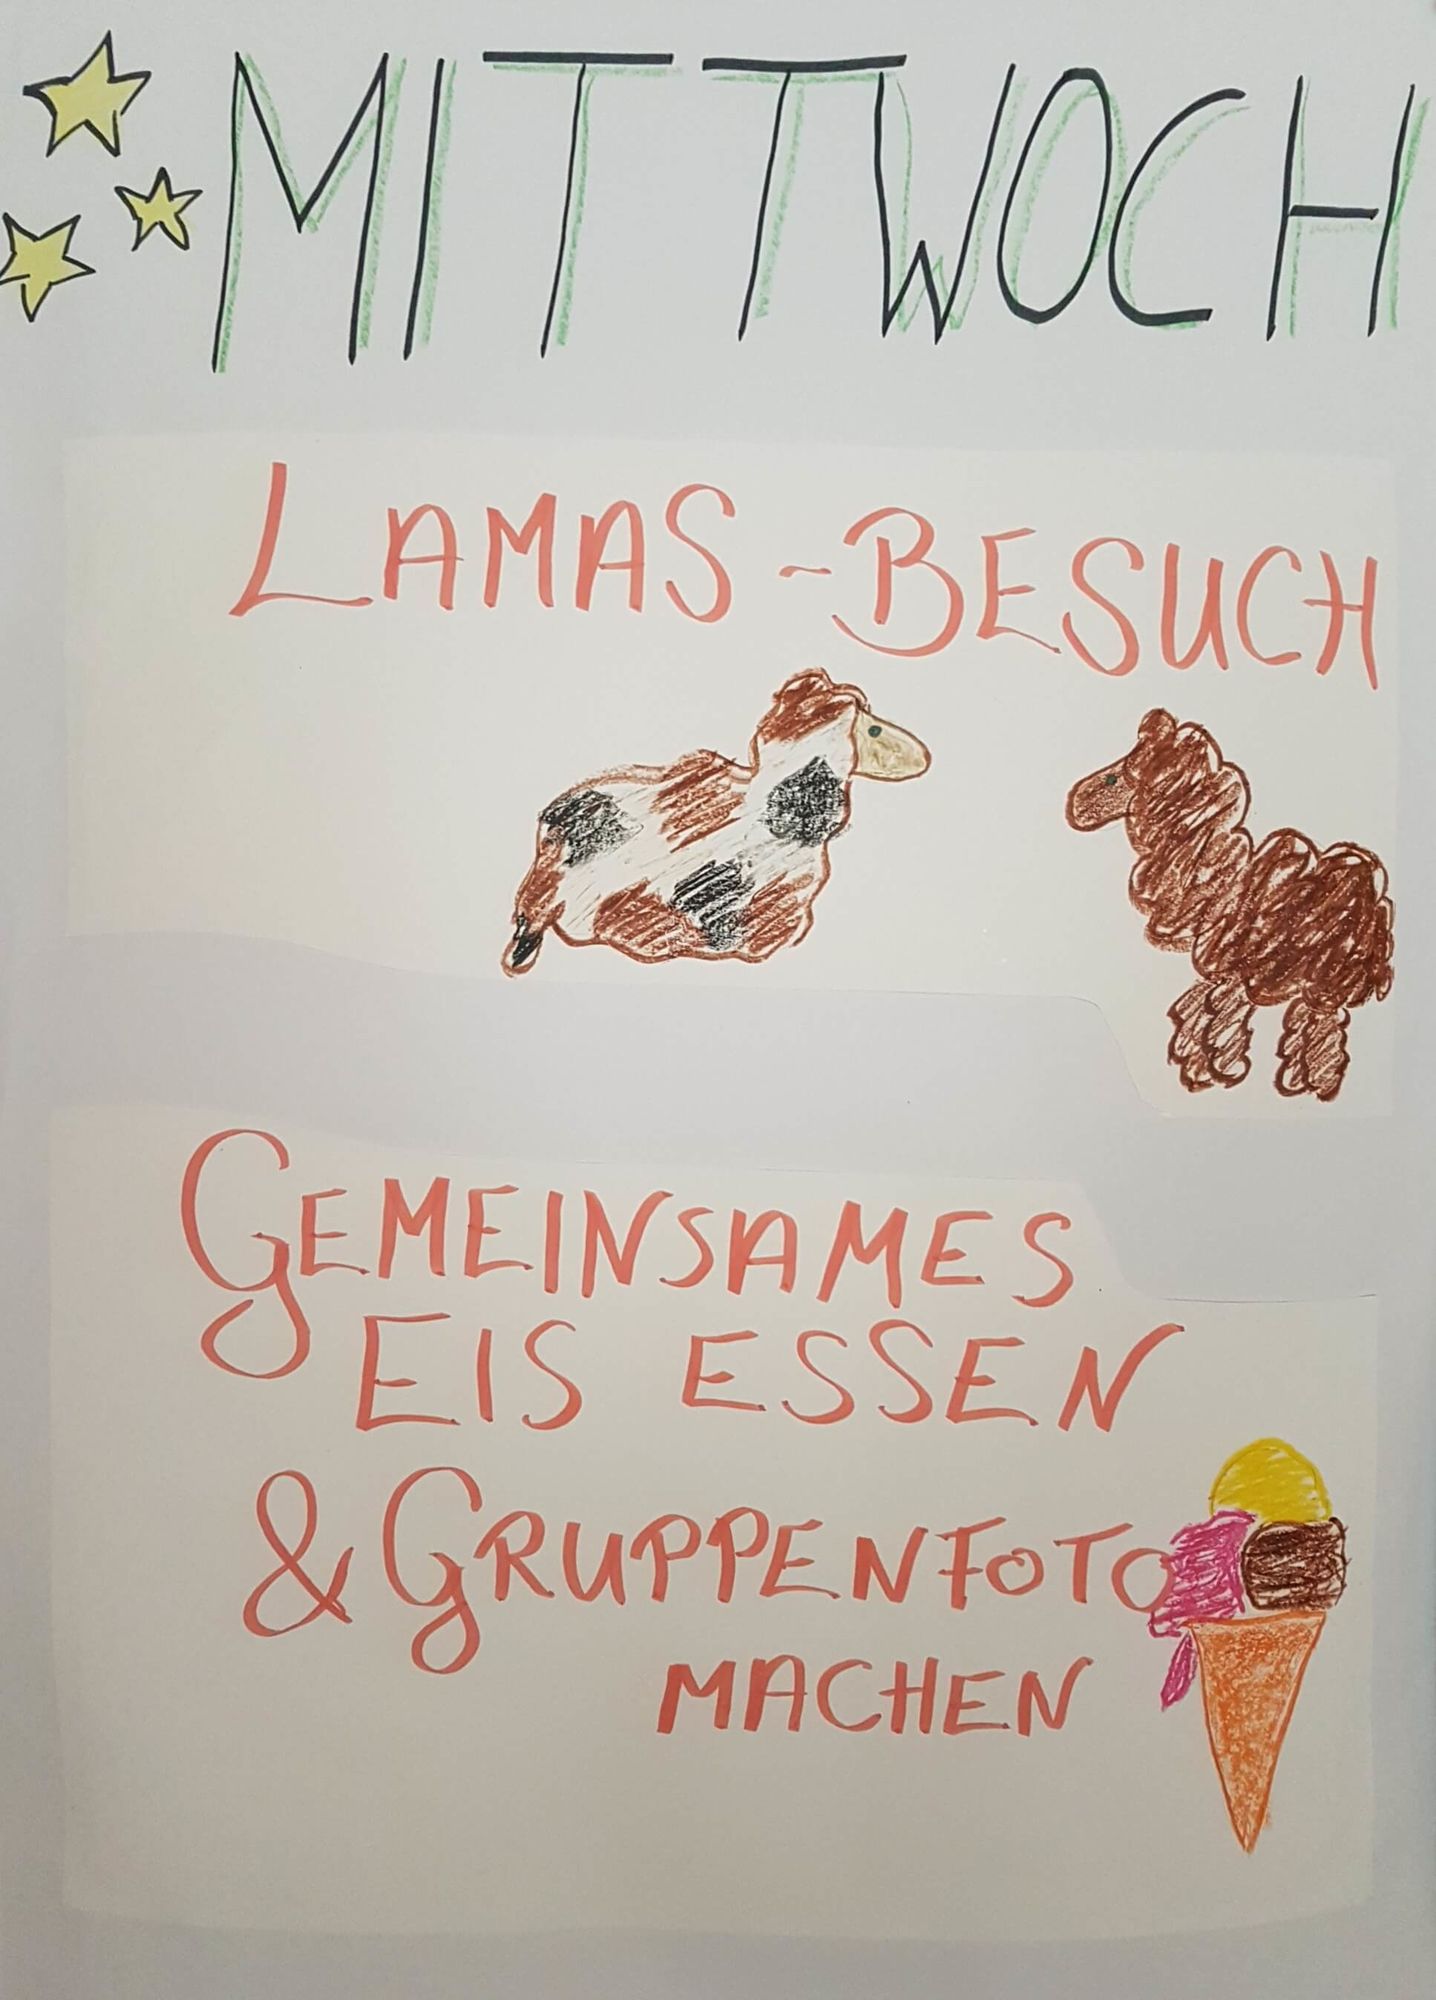 MITTWOCH
LAMAS-BESUCH
GEMEINSAMES
EIS ESSEN
& GRUPPENFOTO
MACHEN